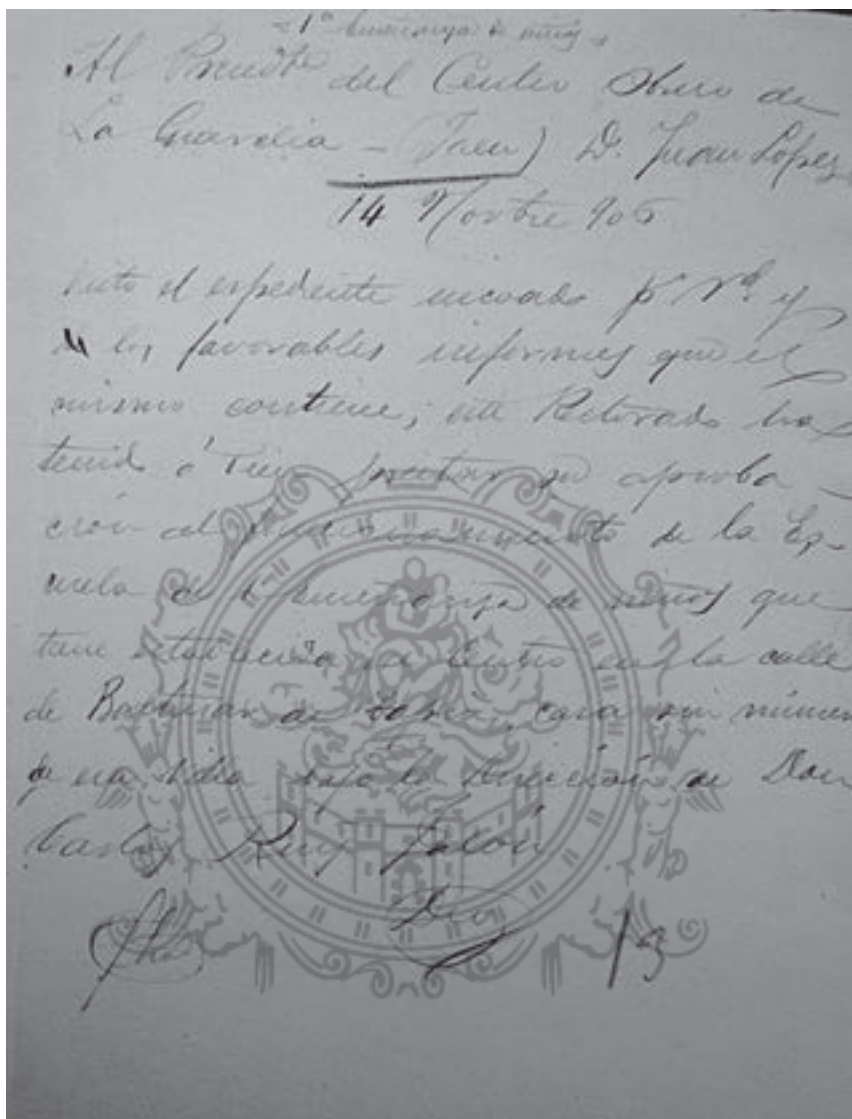 1ª Enseñanza de niños
Al Presidte del Centro Obrero de
La Guardia - (Jaen) D. Juan López
14 Novbre 906
Visto el espediente incoado pr Vd y
de los favorables informes que el
mismo contiene, este Rectorado ha
tenido á bien prestar su aproba-
ción al funcionamiento de la Es-
cuela de 1ª Enseñanza de niños que
tiene establecida ese Centro en la calle
de Baltasar de, casa sin número
de esa villa bajo la dirección de Don
Carlos Ruiz